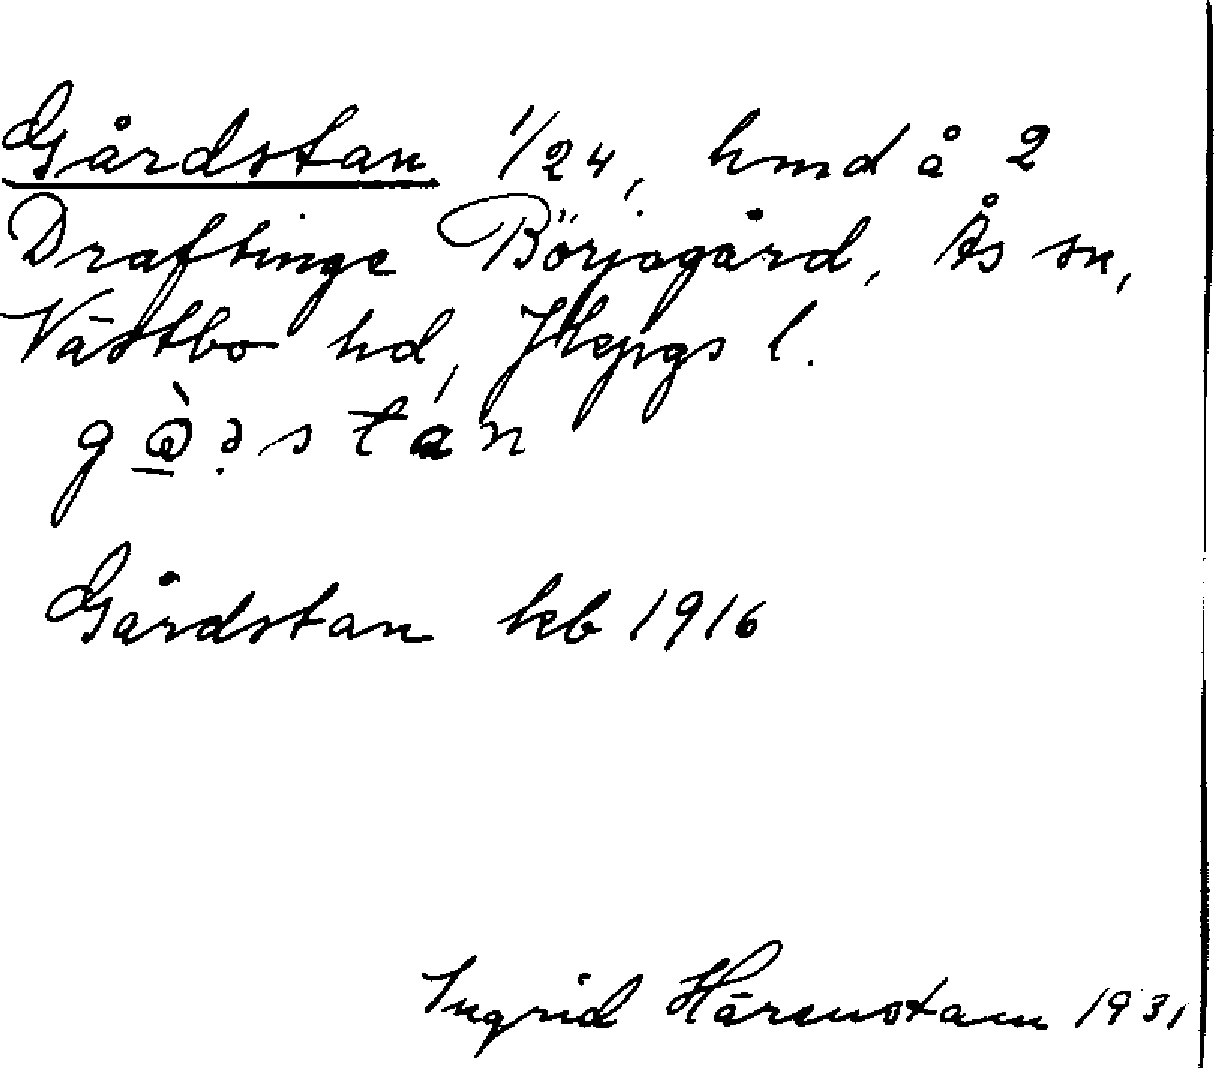 Gårdstan 1/24, hmd å 2
Draftinge Börjagård, Ås sn,
Västbo hd, Jkpgs l.
Gårdstan kb 1916
Ingrid Härenstam 1931